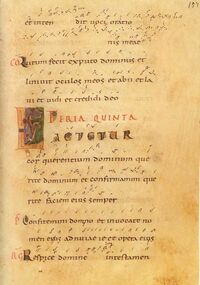 et inten dit voci oratio
nis meae
Co Lutum fecit ex sputo dominus et
liniuit oculos meos et abii et la
ui et uidi et credidi deo
FERIA QUINTA
LAETETUR
cor querentium dominum que
rite dominum et confirmamini que
rite faciem eius semper
Ps Confitemini domino et inuocate no
men eius adnuntiate inter gentes opera eius
RG Respice domine in testamen